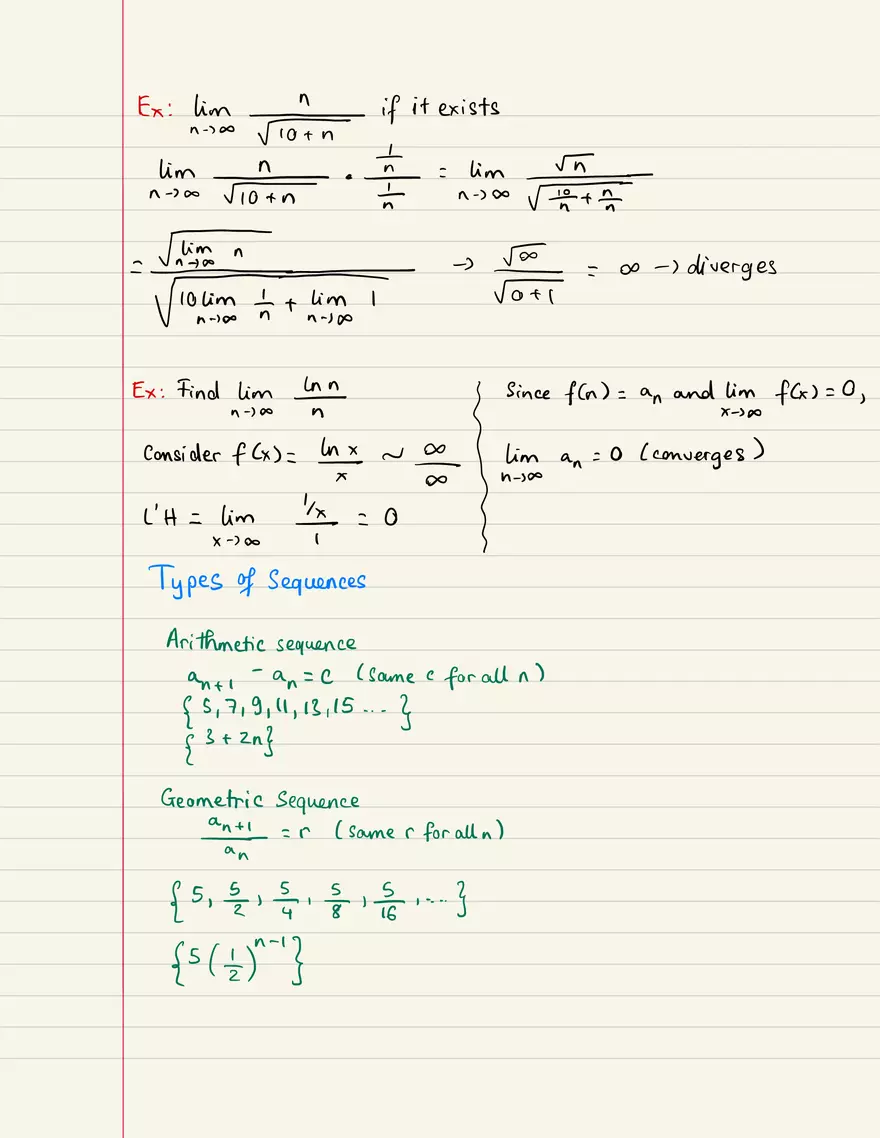 Ex: lim n→∞ n/√(10+n) if it exists
lim n→∞ n/√(10+n) · (1/n)/(1/n) = lim n→∞ √n/√(10/n + n/n)
= √(lim n→∞ n)/√(10 lim n→∞ 1/n + lim n→∞ 1) → √∞/√(0+1) = ∞ → diverges
Ex: Find lim n→∞ ln n/n
Consider f(x) = ln x/x ~ ∞/∞
L'H = lim x→∞ (1/x)/1 = 0
Since f(n) = aₙ and lim x→∞ f(x) = 0,
lim n→∞ aₙ = 0 (converges)
Types of Sequences
Arithmetic sequence
aₙ₊₁ - aₙ = c (same c for all n)
{5, 7, 9, 11, 13, 15 ... }
{3 + 2n}
Geometric Sequence
aₙ₊₁/aₙ = r (same r for all n)
{5, 5/2, 5/4, 5/8, 5/16, ... }
{5(1/2)ⁿ⁻¹}